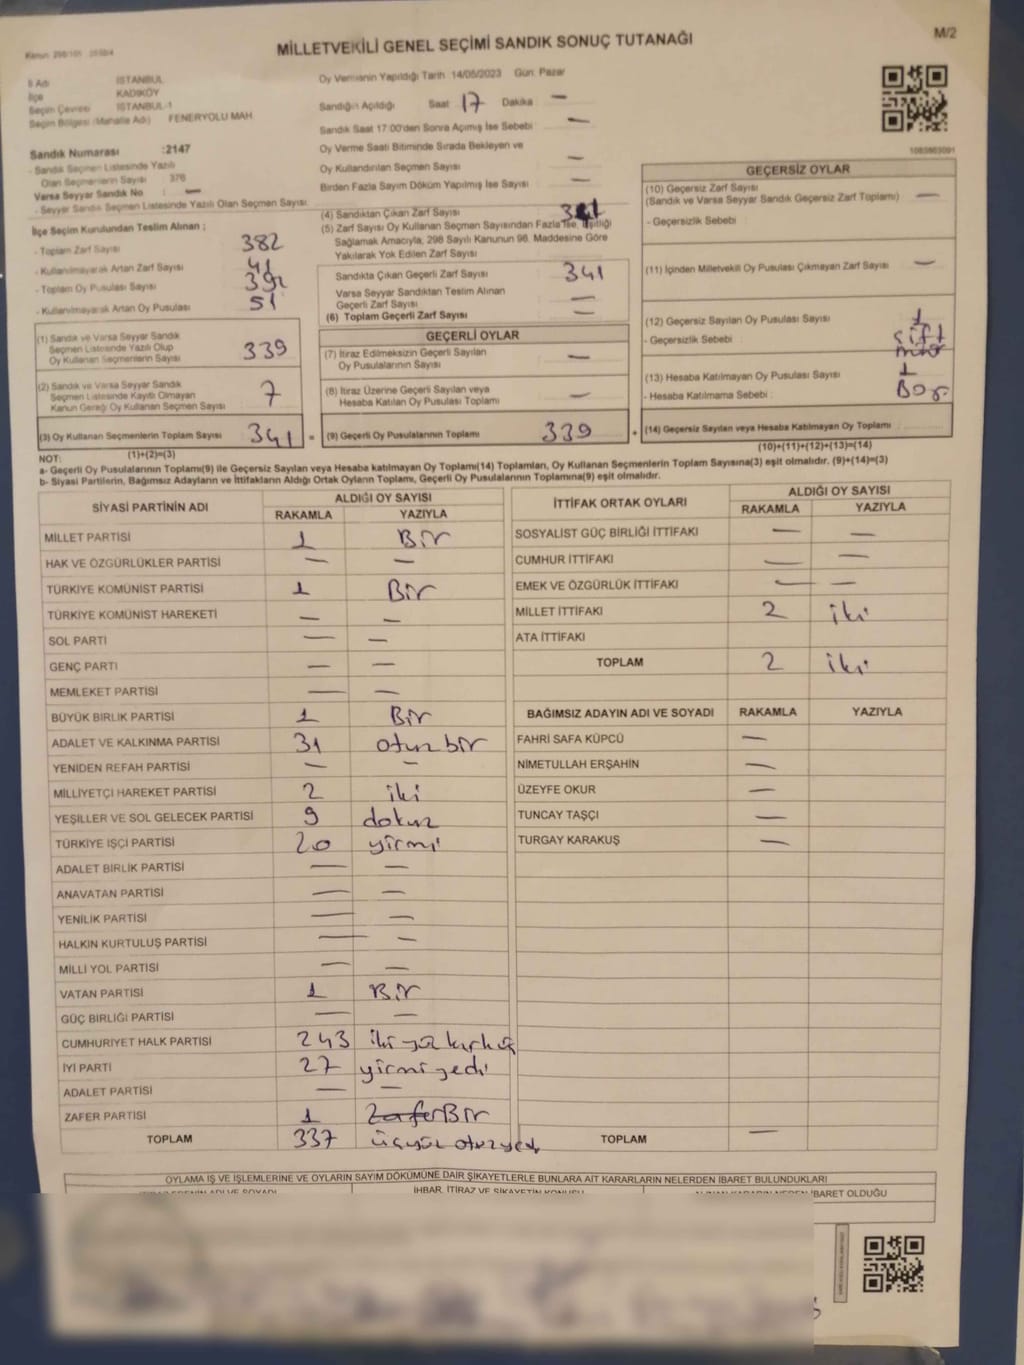 MİLLETVEKİLİ GENEL SEÇİMİ SANDIK SONUÇ TUTANAĞI
M/2
İl Adı İSTANBUL
İlçe KADIKÖY
Seçim Çevresi İSTANBUL-1
Seçim Bölgesi (Mahalle Adı) FENERYOLU MAH
Sandık Numarası :2147
- Sandık Seçmen Listesinde Yazılı
Olan Seçmenlerin Sayısı : 376
Varsa Seyyar Sandık No : —
- Seyyar Sandık Seçmen Listesinde Yazılı Olan Seçmen Sayısı
İlçe Seçim Kurulundan Teslim Alınan ;
- Toplam Zarf Sayısı 382
- Kullanılmayarak Artan Zarf Sayısı 41
- Toplam Oy Pusulası Sayısı 392
- Kullanılmayarak Artan Oy Pusulası 51
(1) Sandık ve Varsa Seyyar Sandık
Seçmen Listesinde Yazılı Olup
Oy Kullanan Seçmenlerin Sayısı 339
(2) Sandık ve Varsa Seyyar Sandık
Seçmen Listesinde Kayıtlı Olmayan
Kanun Gereği Oy Kullanan Seçmen Sayısı 7
(3) Oy Kullanan Seçmenlerin Toplam Sayısı 341 =
(1)+(2)=(3)
Oy Vermenin Yapıldığı Tarih 14/05/2023 Gün: Pazar
Sandığın Açıldığı Saat 17 Dakika : —
Sandık Saat 17:00'den Sonra Açımış İse Sebebi : —
Oy Verme Saati Bitiminde Sırada Bekleyen ve
Oy Kullandırılan Seçmen Sayısı —
Birden Fazla Sayım Döküm Yapılmış İse Sayısı : —
(4) Sandıktan Çıkan Zarf Sayısı 341
(5) Zarf Sayısı Oy Kullanan Seçmen Sayısından Fazla İse, Eşitliği
Sağlamak Amacıyla, 298 Sayılı Kanunun 98. Maddesine Göre
Yakılarak Yok Edilen Zarf Sayısı
Sandıkta Çıkan Geçerli Zarf Sayısı 341
Varsa Seyyar Sandıktan Teslim Alınan
Geçerli Zarf Sayısı —
(6) Toplam Geçerli Zarf Sayısı : —
GEÇERLİ OYLAR
(7) İtiraz Edilmeksizin Geçerli Sayılan
Oy Pusulalarının Sayısı —
(8) İtiraz Üzerine Geçerli Sayılan veya
Hesaba Katılan Oy Pusulası Toplamı —
(9) Geçerli Oy Pusulalarının Toplamı 339 +
1083863091
GEÇERSİZ OYLAR
(10) Geçersiz Zarf Sayısı
(Sandık ve Varsa Seyyar Sandık Geçersiz Zarf Toplamı) —
- Geçersizlik Sebebi :
(11) İçinden Milletvekili Oy Pusulası Çıkmayan Zarf Sayısı —
(12) Geçersiz Sayılan Oy Pusulası Sayısı 1
- Geçersizlik Sebebi : çift
(13) Hesaba Katılmayan Oy Pusulası Sayısı : 1
- Hesaba Katılmama Sebebi :
(14) Geçersiz Sayılan veya Hesaba Katılmayan Oy Toplamı :
(10)+(11)+(12)+(13)=(14)
NOT:
a- Geçerli Oy Pusulalarının Toplamı(9) ile Geçersiz Sayılan veya Hesaba katılmayan Oy Toplamı(14) Toplamları, Oy Kullanan Seçmenlerin Toplam Sayısına(3) eşit olmalıdır. (9)+(14)=(3)
b- Siyasi Partilerin, Bağımsız Adayların ve İttifakların Aldığı Ortak Oyların Toplamı, Geçerli Oy Pusulalarının Toplamına(9) eşit olmalıdır.
SİYASİ PARTİNİN ADI ALDIĞI OY SAYISI
RAKAMLA YAZIYLA
MİLLET PARTİSİ 1 Bir
HAK VE ÖZGÜRLÜKLER PARTİSİ — —
TÜRKİYE KOMÜNİST PARTİSİ 1 Bir
TÜRKİYE KOMÜNİST HAREKETİ — —
SOL PARTİ — —
GENÇ PARTİ — —
MEMLEKET PARTİSİ — —
BÜYÜK BİRLİK PARTİSİ 1 Bir
ADALET VE KALKINMA PARTİSİ 31 otuz bir
YENİDEN REFAH PARTİSİ — —
MİLLİYETÇİ HAREKET PARTİSİ 2 iki
YEŞİLLER VE SOL GELECEK PARTİSİ 9 dokuz
TÜRKİYE İŞÇİ PARTİSİ 20 yirmi
ADALET BİRLİK PARTİSİ — —
ANAVATAN PARTİSİ — —
YENİLİK PARTİSİ — —
HALKIN KURTULUŞ PARTİSİ — —
MİLLİ YOL PARTİSİ — —
VATAN PARTİSİ 1 Bir
GÜÇ BİRLİĞİ PARTİSİ — —
CUMHURİYET HALK PARTİSİ 243 iki yüz kırk üç
İYİ PARTİ 27 yirmi yedi
ADALET PARTİSİ — —
ZAFER PARTİSİ 1 Zafer Bir
TOPLAM 337 üçyüz otuz yedi
İTTİFAK ORTAK OYLARI ALDIĞI OY SAYISI
RAKAMLA YAZIYLA
SOSYALİST GÜÇ BİRLİĞİ İTTİFAKI — —
CUMHUR İTTİFAKI — —
EMEK VE ÖZGÜRLÜK İTTİFAKI — —
MİLLET İTTİFAKI 2 iki
ATA İTTİFAKI
TOPLAM 2 iki
BAĞIMSIZ ADAYIN ADI VE SOYADI RAKAMLA YAZIYLA
FAHRİ SAFA KÜPCÜ —
NİMETULLAH ERŞAHİN —
ÜZEYFE OKUR —
TUNCAY TAŞÇI —
TURGAY KARAKUŞ —
TOPLAM —
OYLAMA İŞ VE İŞLEMLERİNE VE OYLARIN SAYIM DÖKÜMÜNE DAİR ŞİKAYETLERLE BUNLARA AİT KARARLARIN NELERDEN İBARET BULUNDUKLARI
İHBAR, İTİRAZ VE ŞİKAYETİN KONUSU
İBARET OLDUĞU